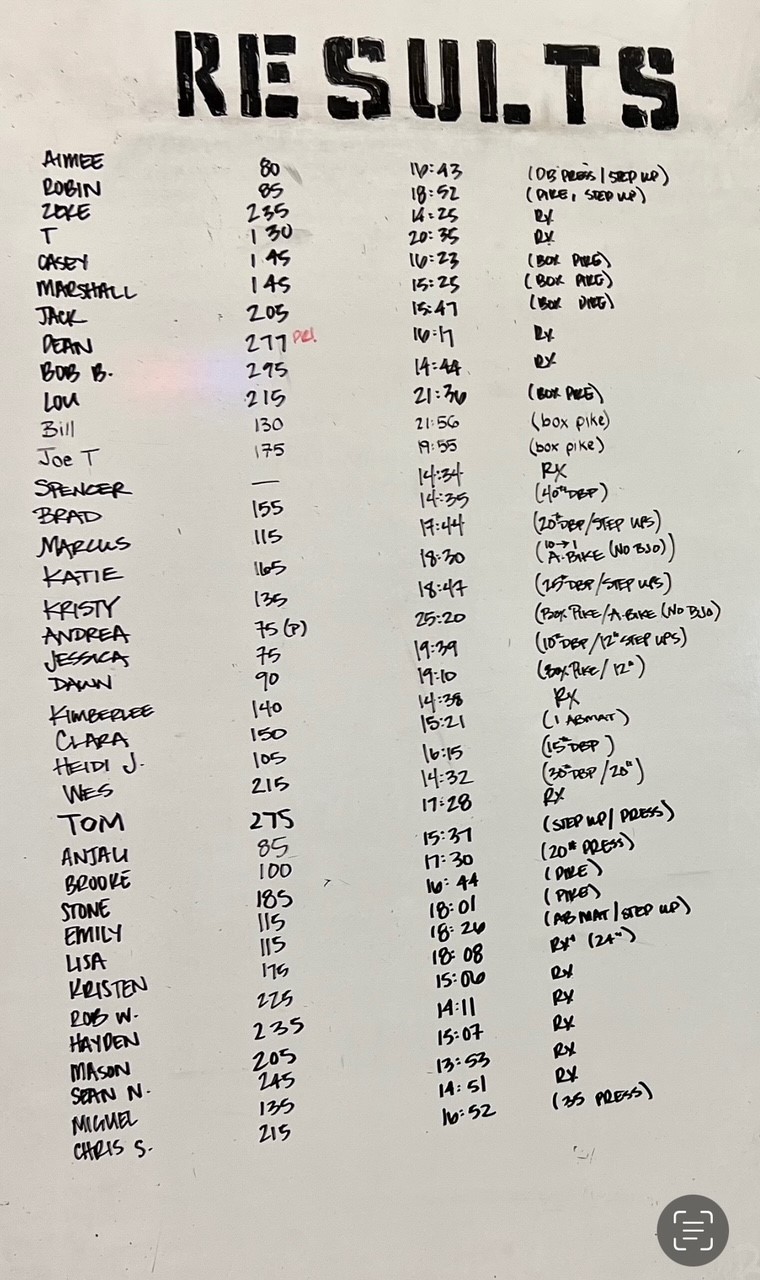 RESULTS
AIMEE 80 16:43 (DB PRESS / STEP UP)
ROBIN 85 18:52 (PIKE, STEP UP)
ZEKE 235 14:25 RX
T 130 20:35 RX
CASEY 145 16:23 (BOX PIKE)
MARSHALL 145 15:25 (BOX PIKE)
JACK 205 15:47 (BOX PIKE)
DEAN 277 PR! 16:17 RX
BOB B. 295 14:44 RX
LOU 215 21:36 (BOX PIKE)
Bill 130 21:56 (box pike)
Joe T 175 19:55 (box pike)
SPENCER — 14:34 RX
BRAD 155 14:35 (40# DBP)
MARCUS 115 17:44 (20# DBP/STEP UPS)
KATIE 165 18:30 (10→1 A.BIKE (NO BJO))
KRISTY 135 18:47 (25# DBP/STEP UPS)
ANDREA 75 (P) 25:20 (BOX PIKE/A.BIKE (NO BJO)
JESSICA 75 19:39 (10# DBP/12" STEP UPS)
DAWN 90 19:10 (BOX PIKE/12")
KIMBERLEE 140 14:38 RX
CLARA 150 15:21 (1 ABMAT)
HEIDI J. 105 16:15 (15# DBP)
WES 215 14:32 (30# DBP/20")
TOM 275 17:28 RX
ANJALI 85 15:37 (STEP UP/PRESS)
BROOKE 100 17:30 (20# PRESS)
STONE 185 16:44 (PIKE)
EMILY 115 18:01 (PIKE)
LISA 115 18:26 (ABMAT/STEP UP)
KRISTEN 175 18:08 RX+ (24")
ROB W. 225 15:06 RX
HAYDEN 235 14:11 RX
MASON 205 15:07 RX
SEAN N. 245 13:53 RX
MIGUEL 135 14:51 RX
CHRIS S. 215 16:52 (35 PRESS)